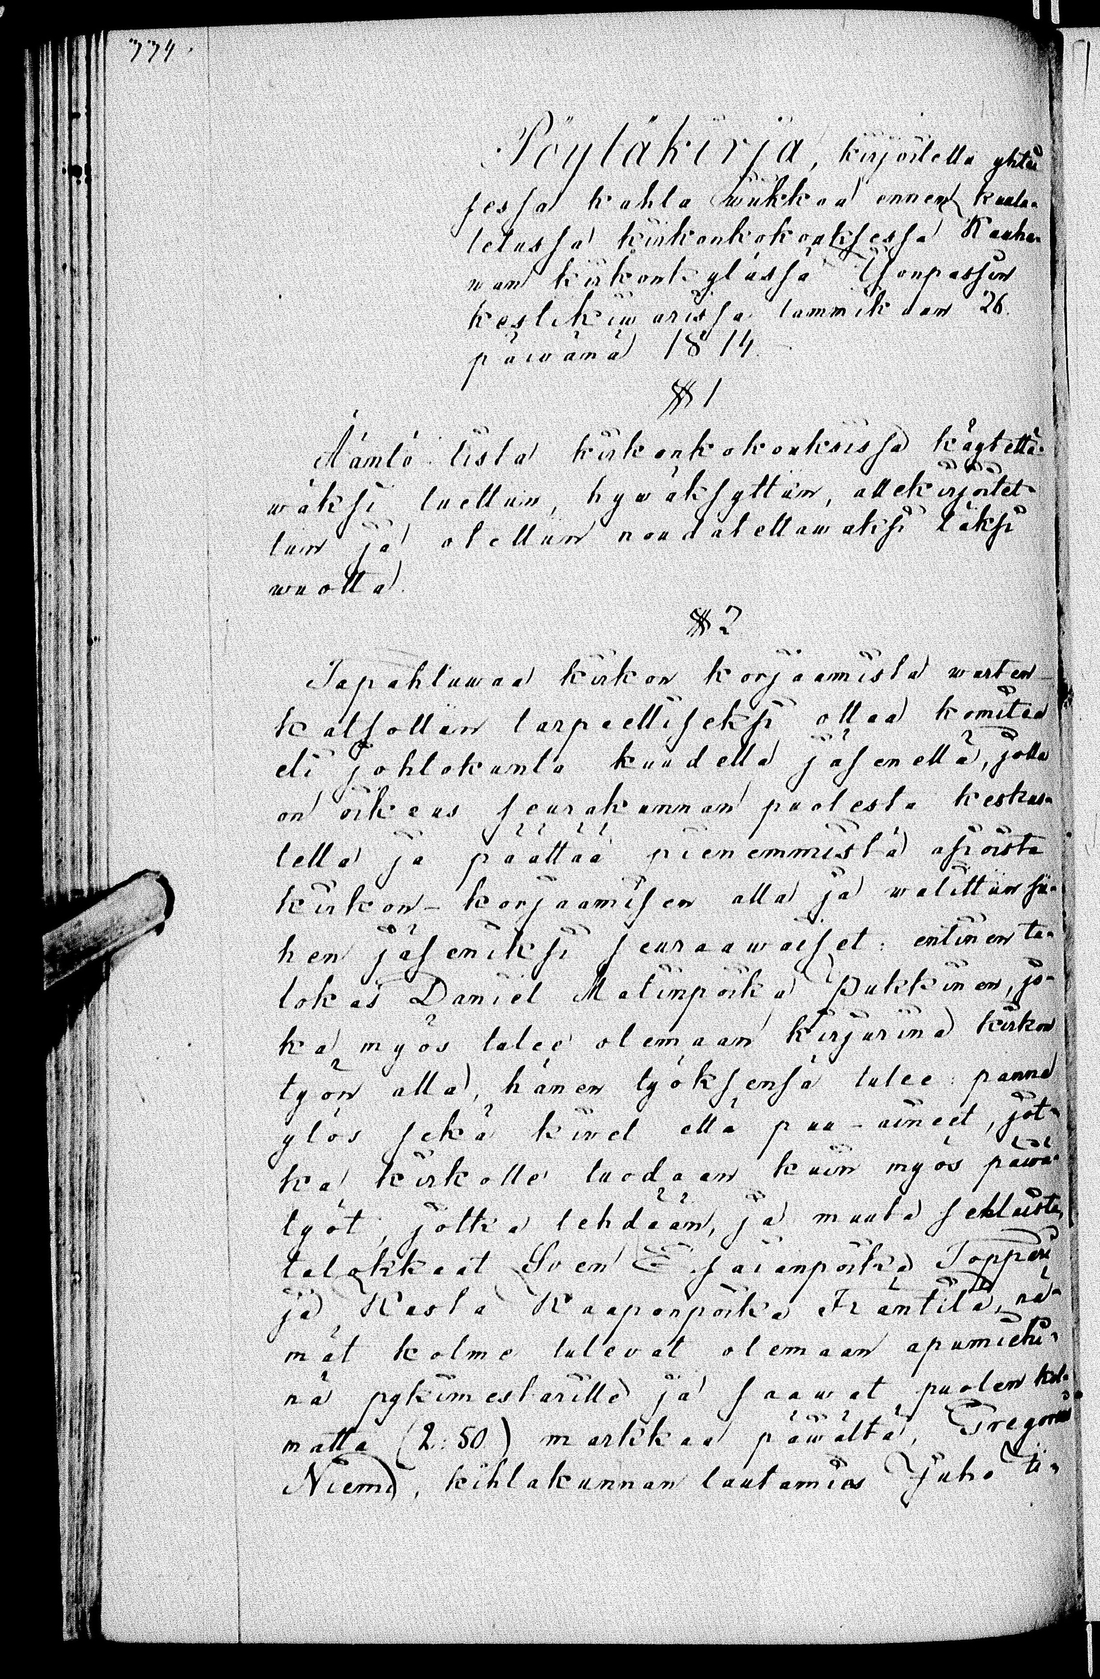 774.
Pöytäkirja, kirjoitettu yhtei
sessa kahta wiikkoa ennen kuulu-
tetussa kirkonkokouksessa Kauha-
wan kirkonkylässä Isonpassin
kestikiiwarissa tammikuun 26.
päiwänä 1874.
§ 1
Ääntö lista kirkonkokouksissa käytettä-
wäksi luettiin, hywäksyttiin, allekirjoitet-
tiin ja otettiin noudatettawaksi täksi
wuotta.
§ 2
Tapahtuwaa kirkon korjaamista warten
katsottiin tarpeelliseksi ottaa komitea
eli johtokunta kuudella jäsenellä, jolla
on oikeus seurakunnan puolesta keskus-
tella ja päättää pienemmistä asioista
kirkon-korjaamisen alla ja walittiin sii-
hen jäseniksi seuraawaiset: entinen ta-
lokas Daniel Matinpoika Pukkinen, jo-
ka myös tulee olemaan kirjurina kirkon
työn alla, hänen työksensä tulee panna
ylös sekä kiwet että puu-aineet, jot-
ka kirkolle tuodaan kuin myös päiwä-
työt, jotka tehdään, ja muuta sellaista,
talokkaat Sven Esaianpoika Toppari
ja Kasta Kaaponpoika Frantila, nä-
mät kolme tulevat olemaan apumiehi-
nä pykimestarille ja saawat puolen kol-
matta (2:50) markkaa päiwältä, Gregorius
Niemi, kihlakunnan lautamies Juho Ii-